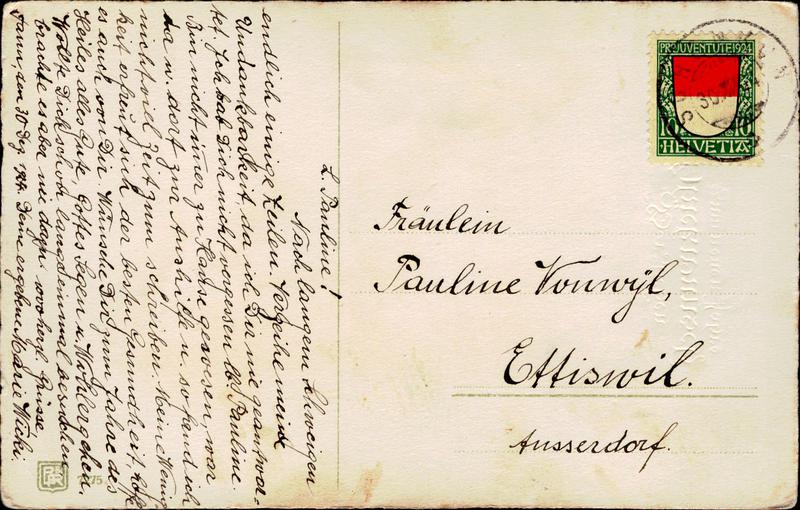 L. Pauline!
Nach langem Schweigen
endlich einige Zeilen. Verzeihe meine
Undankbarkeit, da ich Dir nie geantwor-
tet. Ich hab Dich nicht vergessen lb. Pauline
Bin nicht imer zu Hause gewesen, war
da u. dort zur Aushilfe u. so fand ich
nicht viel Zeit zum schreiben. Meine Wenig
keit erfreut sich der besten Gesundheit, hoffe
es auch von Dir. Wünsche Dir zum Jahre des
Heiles alles Gute, Gottes Segen u. Wohlergehen.
Wollte Dich schon längst einmal besuchen
brachte es aber nie dazu. Grüsse
den 30 Dez. 1924. Deine ergebene Marie Wicki.
PRO JUVENTUTE 1924
10 10
HELVETIA
30.
Fräulein
Pauline Vonwyl,
Ettiswil.
Ausserdorf.